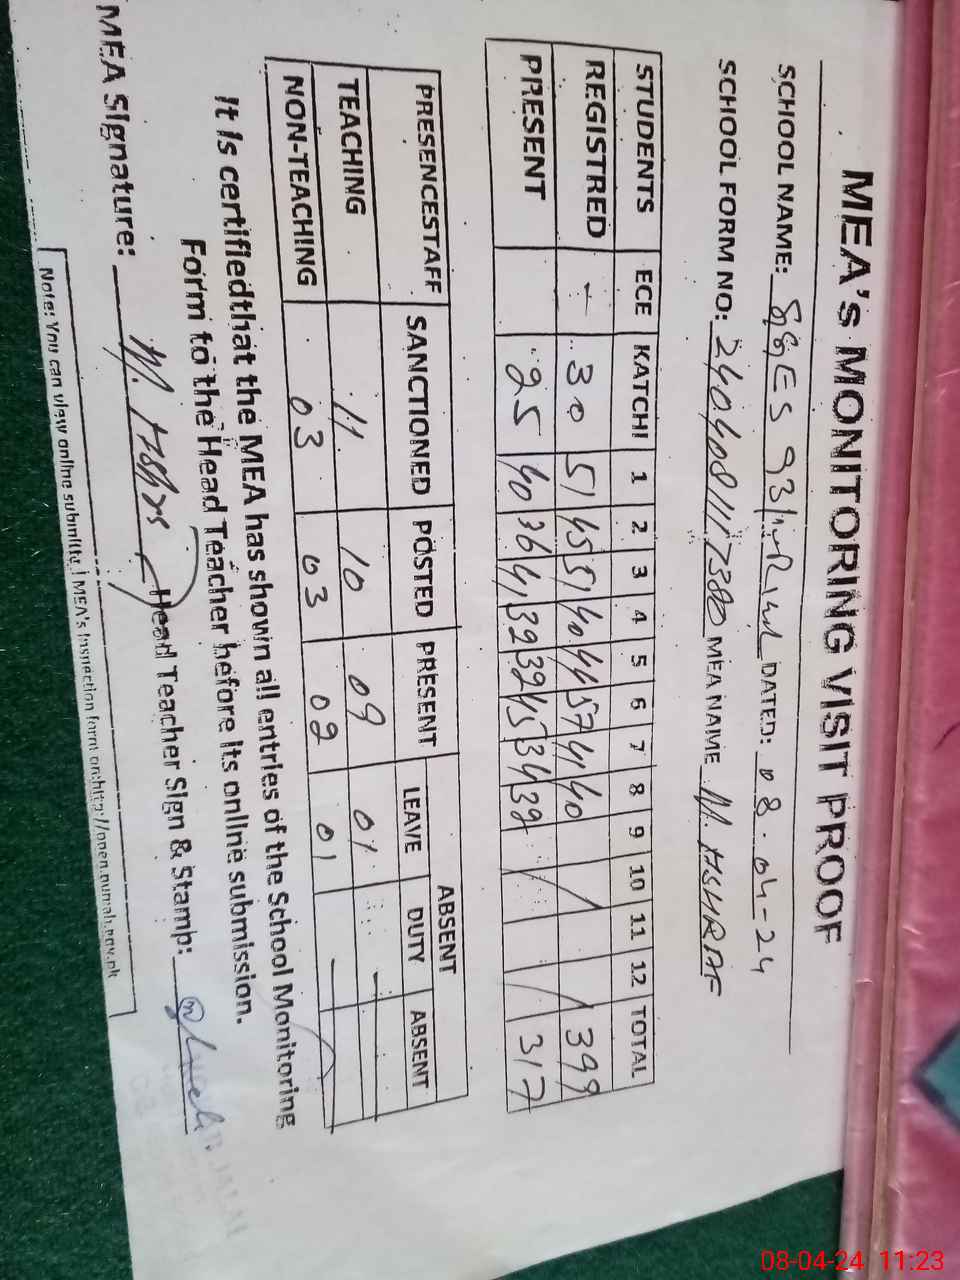 MEA's MONITORING VISIT PROOF
SCHOOL NAME: GGES 93/ DATED: 08-04-24
SCHOOL FORM NO: MEA NAME M. ASHRAF
STUDENTS ECE KATCHI 1 2 3 4 5 6 7 8 9 10 11 12 TOTAL
REGISTRED - 30 51 45 51 40 44 57 41 40 399
PRESENT 25 40 36 41 39 32 45 34 39 317
ABSENT
PRESENCESTAFF SANCTIONED POSTED PRESENT LEAVE DUTY ABSENT
TEACHING 11 10 09 01 -
NON-TEACHING 03 03 02 01 -
It is certifiedthat the MEA has shown all entries of the School Monitoring
Form to the Head Teacher before its online submission.
MEA Signature: M. Ashra Head Teacher Sign & Stamp:
Note: You can view online submitted MEA's Inspection form on:http://open.punjab.gov.pk
08-04-24 11:23